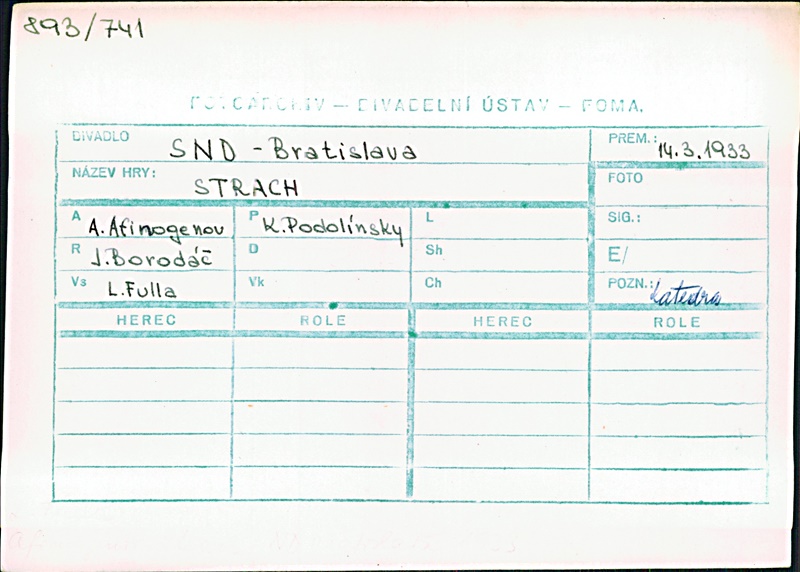 893/741
FOTOARCHIV – DIVADELNÍ ÚSTAV – FOMA.
DIVADLO SND - Bratislava PREM.: 14.3.1933
NÁZEV HRY: STRACH FOTO
A A. Afinogenov P K. Podolínsky L SIG.:
R J. Borodáč D Sh E/
Vs L. Fulla Vk Ch POZN.: Katedra
HEREC ROLE HEREC ROLE